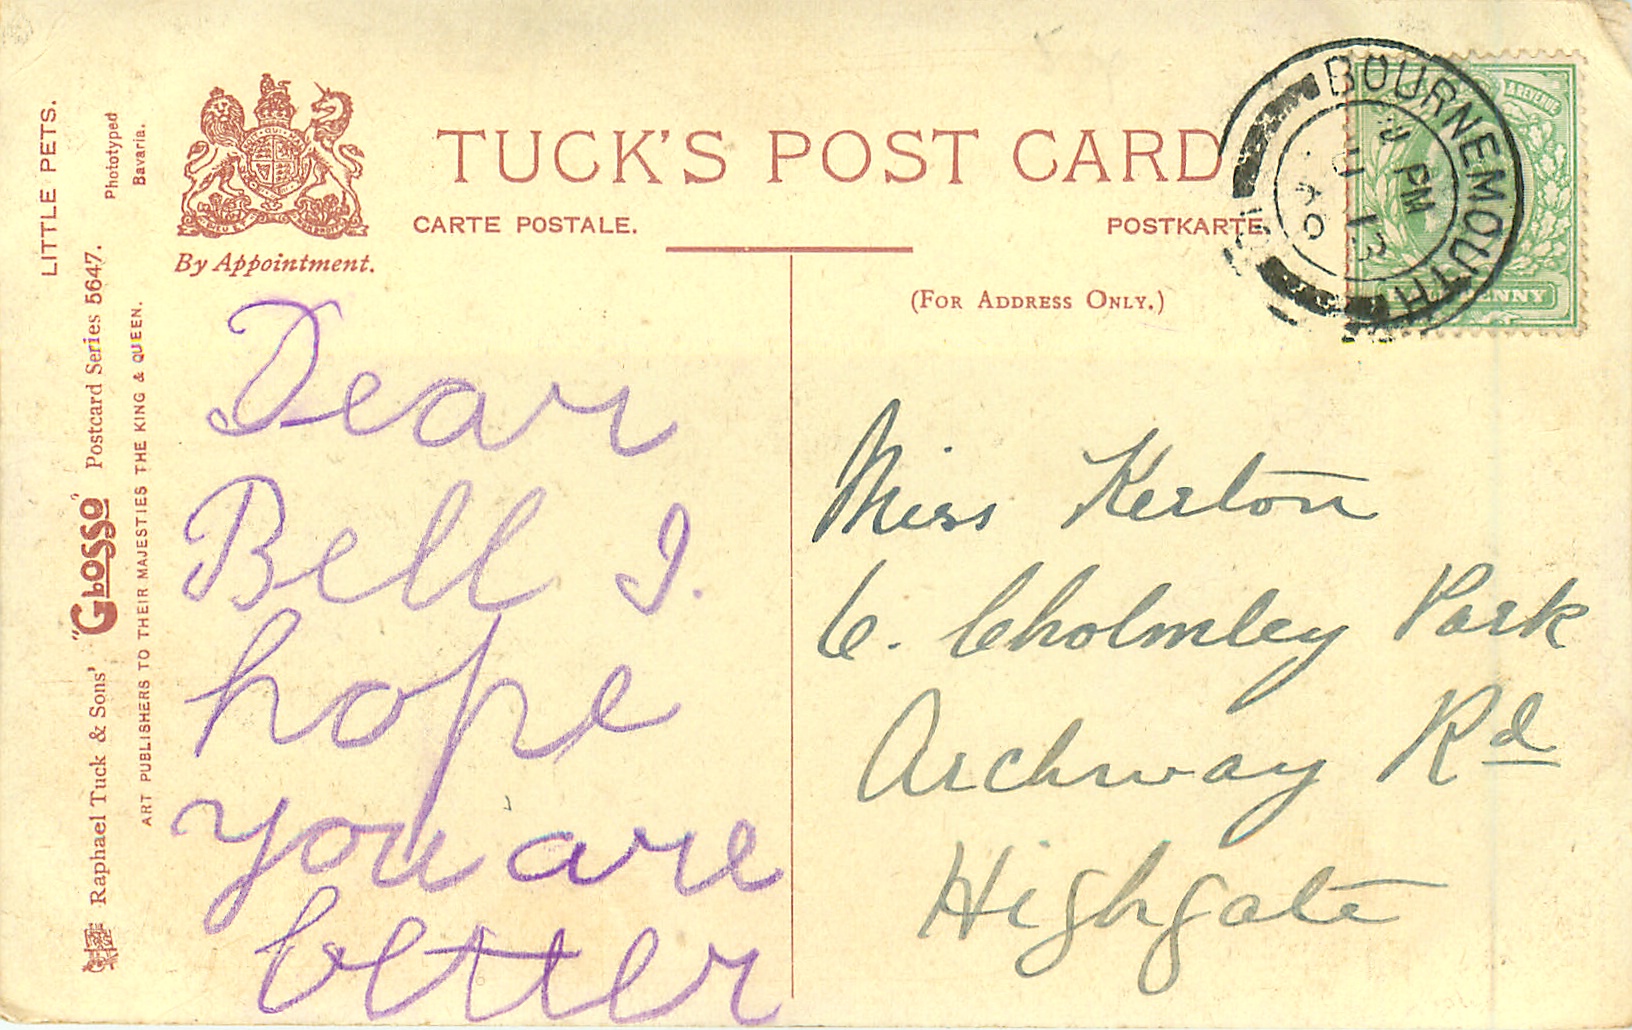 LITTLE PETS.
Phototyped
Bavaria.
Raphael Tuck & Sons' "GLOSSO" Postcard Series 5647.
ART PUBLISHERS TO THEIR MAJESTIES THE KING & QUEEN.
By Appointment.
TUCK'S POST CARD
CARTE POSTALE.
POSTKARTE.
(FOR ADDRESS ONLY.)
BOURNEMOUTH
PM
13
& REVENUE
Dear
Bell I.
hope
you are
better
Miss Kerton
6. Cholmley Park
Archway Rd
Highgate